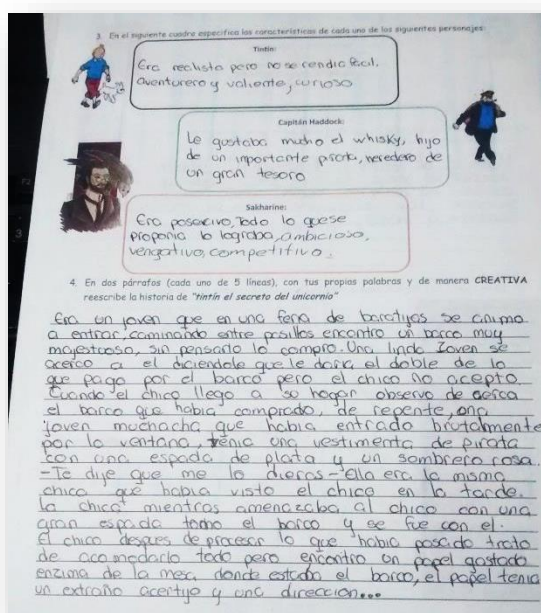 3. En el siguiente cuadro especifica las características de cada uno de los siguientes personajes:
Tintín:
Era realista pero no se rendia facil,
aventurero y valiente, curioso
Capitán Haddock:
Le gustaba mucho el whisky, hijo
de un importante pirata, heredero de
un gran tesoro
Sakharine:
Era posesivo, Todo lo que se
proponia lo lograba, ambicioso,
vengativo, competitivo.
4. En dos párrafos (cada uno de 5 líneas), con tus propias palabras y de manera CREATIVA
reescribe la historia de "tintín el secreto del unicornio"
Era un joven que en una feria de baratijas se animo
a entrar, caminando entre pasillos encontro un barco muy
majestuoso, sin pensarlo lo compro. Una linda Joven se
acerco a el diciendole que le daria el doble de lo
que pago por el barco pero el chico no acepto.
Cuando el chico llego a su hogar observo de cerca
el barco que habia comprado, de repente, una
joven muchacha que habia entrado brutalmente
por la ventana, tenia una vestimenta de pirata
con una espada de plata y un sombrero rosa.
-Te dije que me lo dieras- Ella era la misma
chica que habia visto el chico en la tarde.
la chica mientras amenazaba al chico con una
gran espada tomo el barco y se fue con el.
El chico despues de procesar lo que habia pasado trato
de acomodarlo todo pero encontro un papel gastado
enzima de la mesa donde estaba el barco, el papel tenia
un extraño acertijo y una direccion...